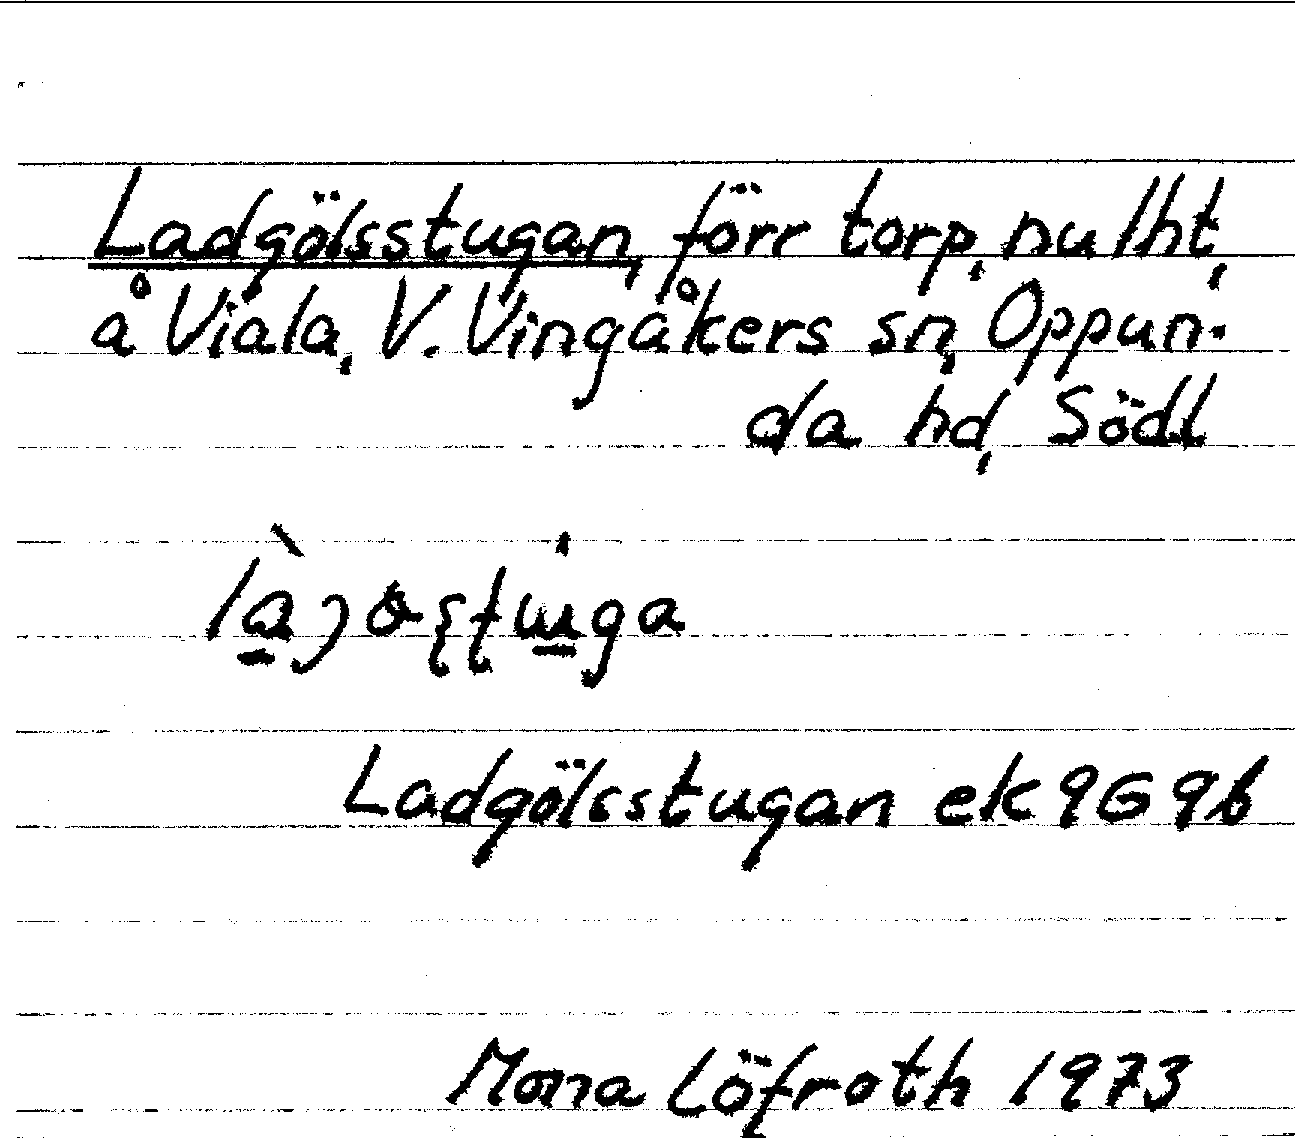 Ladgölsstugan, förr torp, nu lht,
å Viala, V. Vingåkers sn, Oppun-
da hd, Södl
Ladgölsstugan ek 9G 9b
Mona Löfroth 1973